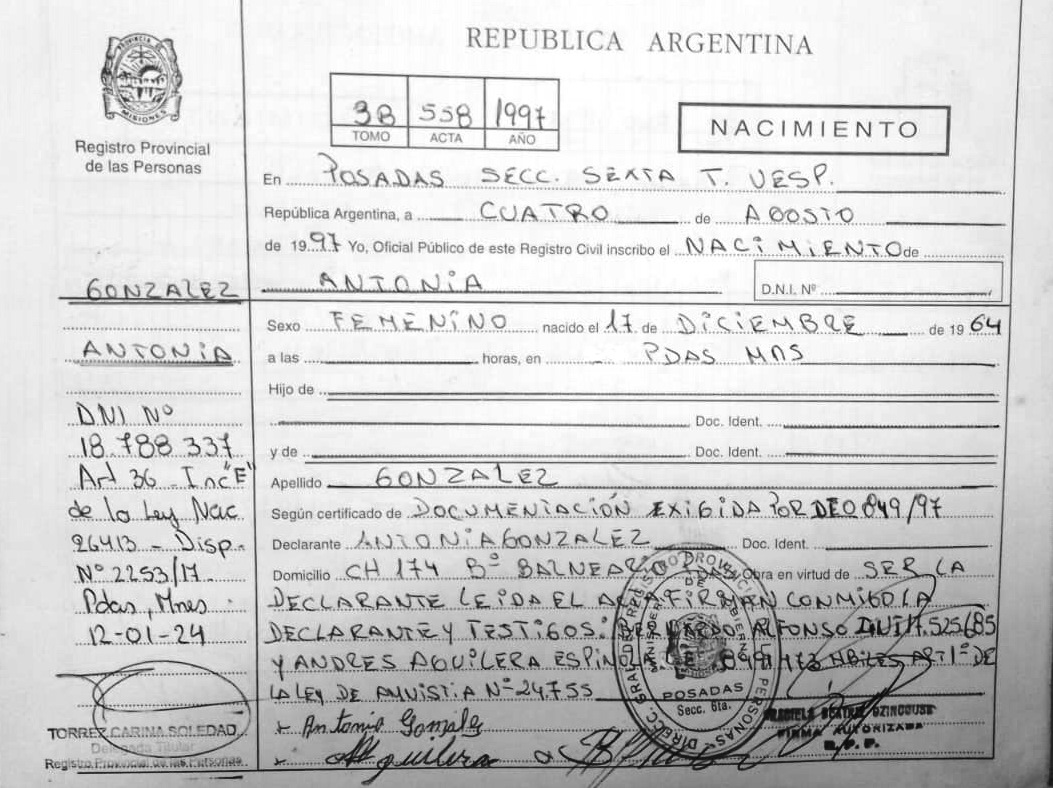 PROVINCIA DE MISIONES
Registro Provincial
de las Personas
REPUBLICA ARGENTINA
38 558 1997
TOMO ACTA AÑO
NACIMIENTO
En POSADAS SECC. SEXTA T. VESP.
República Argentina, a CUATRO de AGOSTO
de 1997 Yo, Oficial Público de este Registro Civil inscribo el NACIMIENTO de
ANTONIA
D.N.I. Nº
Sexo FEMENINO nacido el 17 de DICIEMBRE de 1964
a las horas, en PDAS MNS
Hijo de
Doc. Ident.
y de Doc. Ident.
Apellido GONZALEZ
Según certificado de DOCUMENTACIÓN EXIGIDA POR DEO 849/97
Declarante ANTONIA GONZALEZ Doc. Ident.
Domicilio CH 174 Bº BALNEARIO PDAS Obra en virtud de SER LA
DECLARANTE LEIDA EL ACTA FIRMAN CONMIGO LA
DECLARANTE Y TESTIGOS: ALFONSO DNI 17.525.685
Y ANDRES AGUILERA ESPINOLA HBILES ART 1º DE
LA LEY DE AMNISTIA Nº 24755
GONZALEZ
ANTONIA
DNI Nº
18.788.337
Art 36 - Inc "E"
de la Ley Nac
26413 - Disp.
Nº 2253/17.
Pdas, Mnes.
12-01-24
TORREZ CARINA SOLEDAD
Delegada Titular
Registro Provincial de las Personas
+ Antonia Gonzales
+ Aguilera
POSADAS
Secc. 6ta.
FIRMA AUTORIZADA
R.P.P.